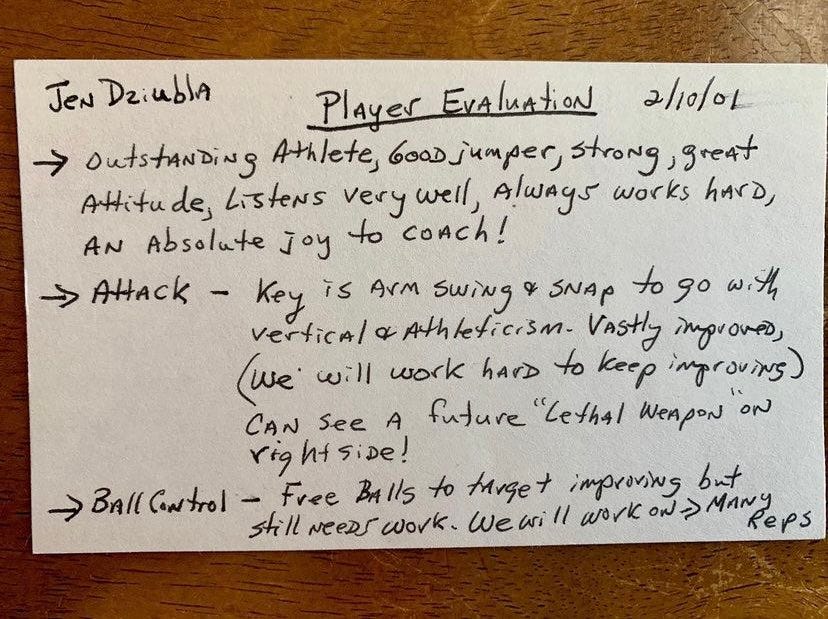 Jen Dziubla Player Evaluation 2/10/01
→ Outstanding Athlete, Good jumper, strong, great
Attitude, Listens very well, Always works hard,
An Absolute joy to coach!
→ Attack - Key is Arm swing & snap to go with
vertical & Athleticism. Vastly improved,
(We will work hard to keep improving)
Can see a future "Lethal Weapon" on
right side!
→ Ball Control - Free Balls to target improving but
still needs work. We will work on → Many
Reps